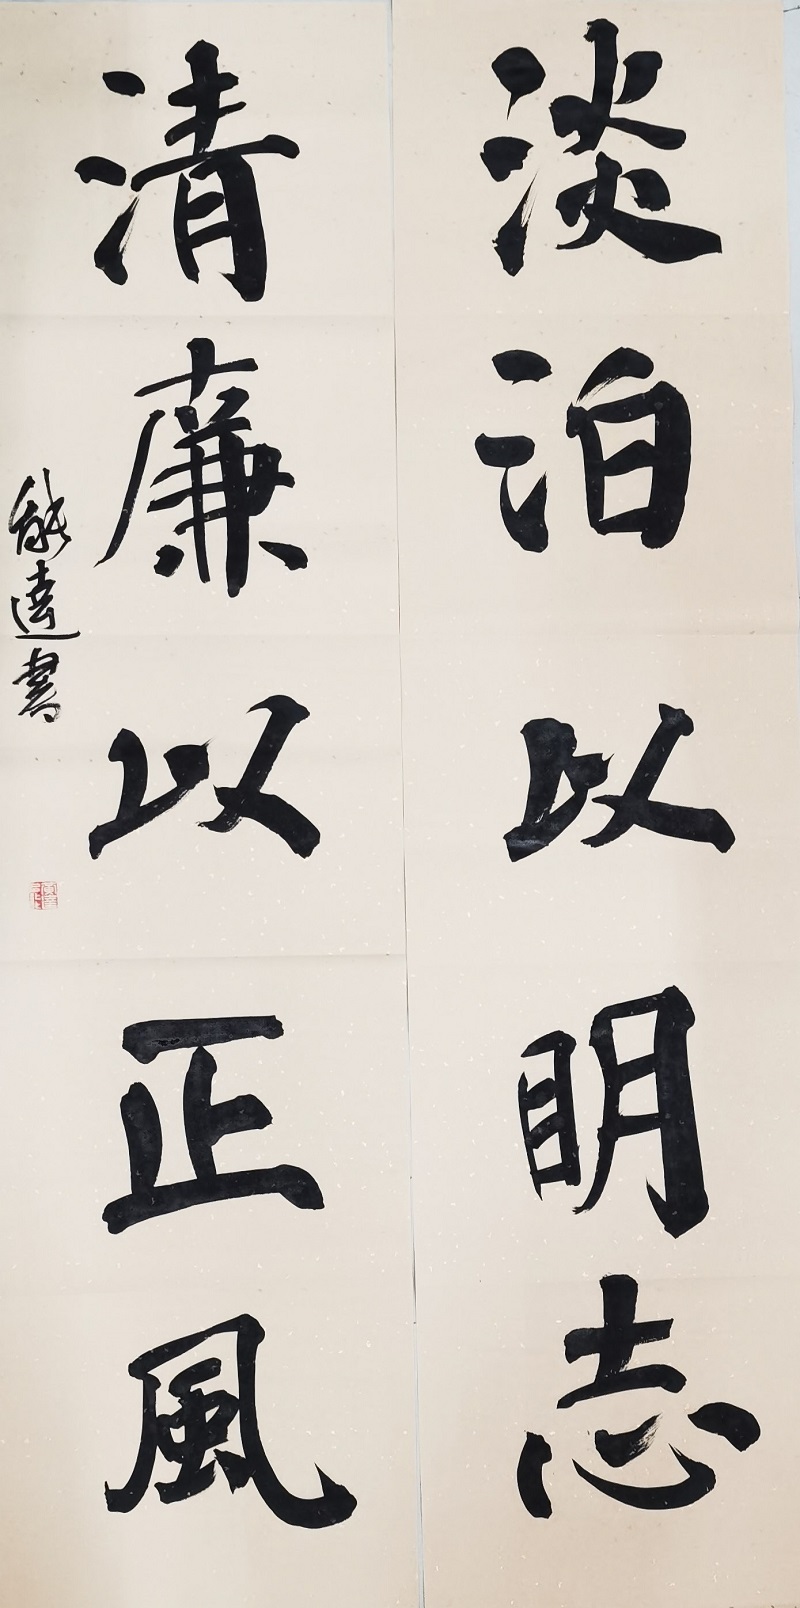 淡泊以明志
清廉以正風
能達書